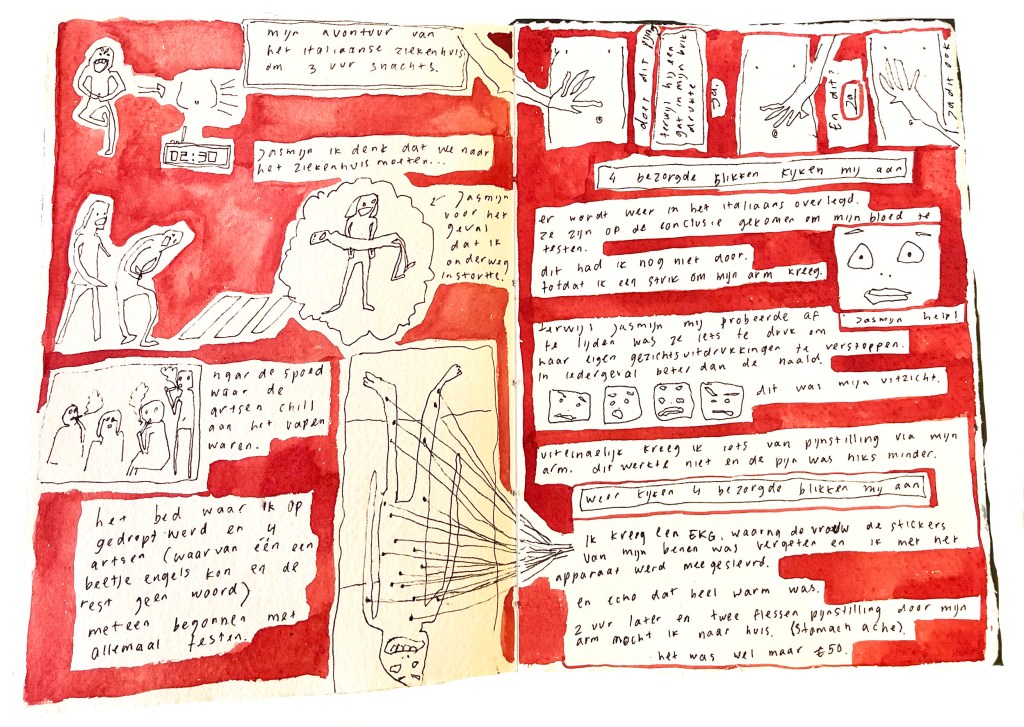 mijn avontuur van
het italiaanse ziekenhuis
om 3 uur snachts.
02:30
Jasmijn ik denk dat we naar
het ziekenhuis moeten...
← Jasmijn
voor het
geval
dat ik
onderweg
instortte.
naar de spoed
waar de
artsen chill
aan het vapen
waren.
het bed waar ik op
gedropt werd en 4
artsen (waarvan één een
beetje engels kon en de
rest geen woord)
meteen begonnen met
allemaal testen.
doet dit pijn
terwijl hij een
gat in mijn buik
drukte
Ja.
En dit?
Ja
Ja dit ook
4 bezorgde blikken kijken mij aan
er wordt weer in het italiaans overlegd.
ze zijn op de conclusie gekomen om mijn bloed te
testen.
dit had ik nog niet door.
totdat ik een strik om mijn arm kreeg.
Jasmijn helpt
terwijl Jasmijn mij probeerde af
te lijden was ze iets te druk om
haar eigen gezichtsuitdrukkingen te verstoppen.
in iedergeval beter dan de naald.
dit was mijn uitzicht.
uiteindelijk kreeg ik iets van pijnstilling via mijn
arm. dit werkte niet en de pijn was niks minder.
weer kijken 4 bezorgde blikken mij aan
Ik kreeg een EKG. waarna de vrouw de stickers
van mijn benen was vergeten en ik met het
apparaat werd meegesleurd.
en echo dat heel warm was.
2 uur later en twee flessen pijnstilling door mijn
arm mocht ik naar huis. (Stomach ache).
het was wel maar €50.